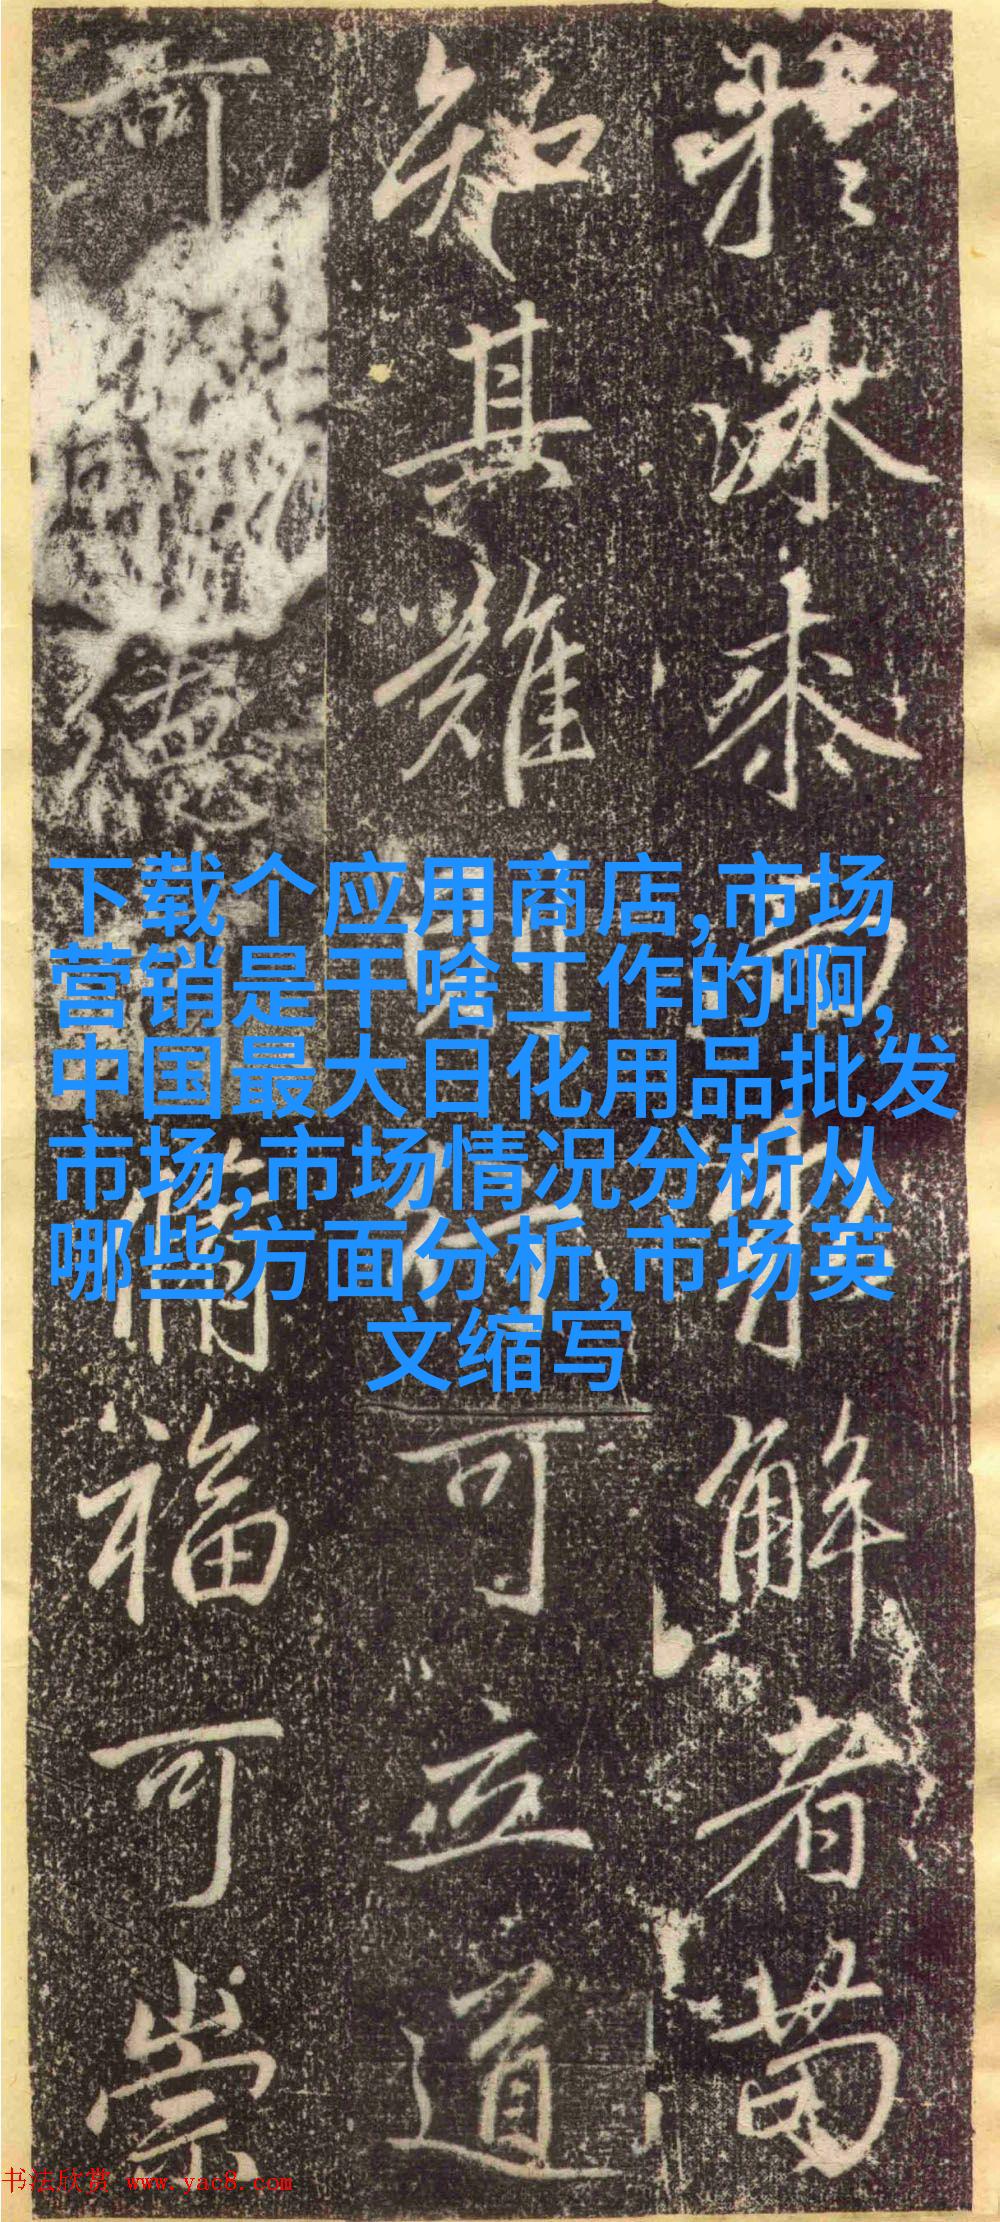 下载个应用商店,市场
营销是干啥工作的啊,
中国最大日化用品批发
市场,市场情况分析从
哪些方面分析,市场英
文缩写
於 而 解者
知其難 可立道
可 德 福可崇
书法欣赏 www.yac8.com